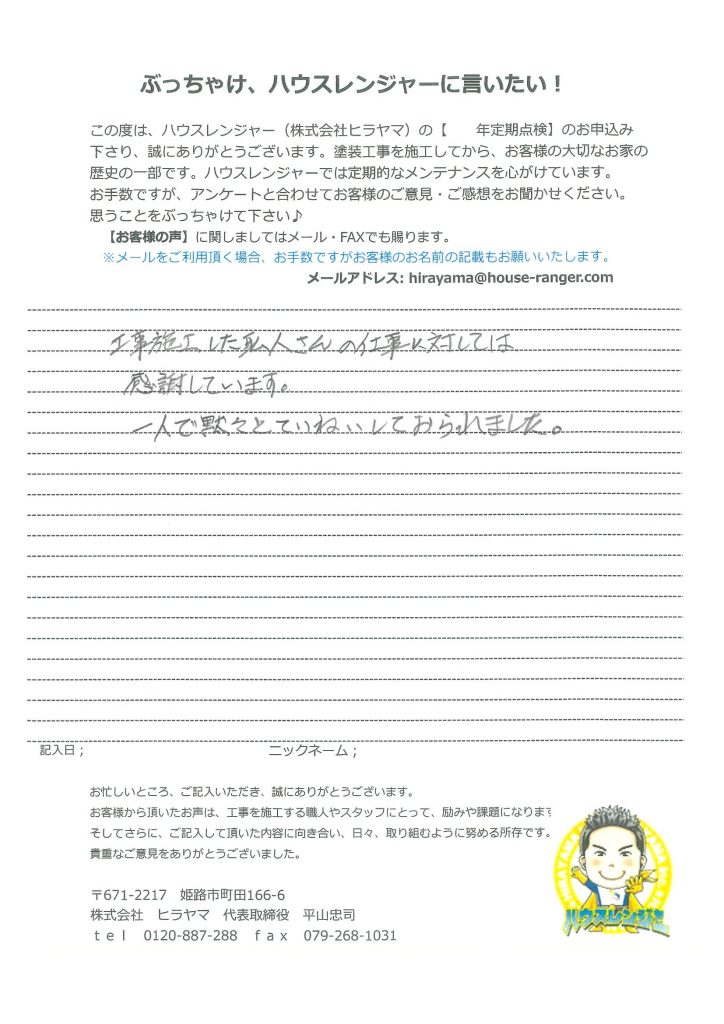 ぶっちゃけ、ハウスレンジャーに言いたい！
この度は、ハウスレンジャー（株式会社ヒラヤマ）の【　　年定期点検】のお申込み
下さり、誠にありがとうございます。塗装工事を施工してから、お客様の大切なお家の
歴史の一部です。ハウスレンジャーでは定期的なメンテナンスを心がけています。
お手数ですが、アンケートと合わせてお客様のご意見・ご感想をお聞かせください。
思うことをぶっちゃけて下さい♪
【お客様の声】に関しましてはメール・FAXでも賜ります。
※メールをご利用頂く場合、お手数ですがお客様のお名前の記載もお願いいたします。
メールアドレス: hirayama@house-ranger.com
工事施工した人さんの仕事に対しては
感謝しています。
一人で黙々とていねいしておられました。
記入日；　ニックネーム；
お忙しいところ、ご記入いただき、誠にありがとうございます。
お客様から頂いたお声は、工事を施工する職人やスタッフにとって、励みや課題になります
そしてさらに、ご記入して頂いた内容に向き合い、日々、取り組むように努める所存です。
貴重なご意見をありがとうございました。
ハウスレンジャー
〒671-2217　姫路市町田166-6
株式会社　ヒラヤマ　代表取締役　平山忠司
ｔｅｌ　0120-887-288　ｆａｘ　079-268-1031